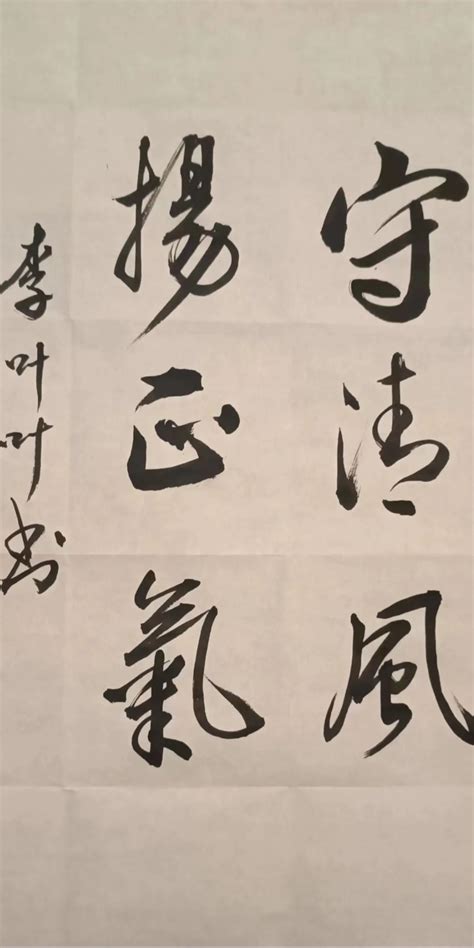 守清風
揚正氣
李叶叶书